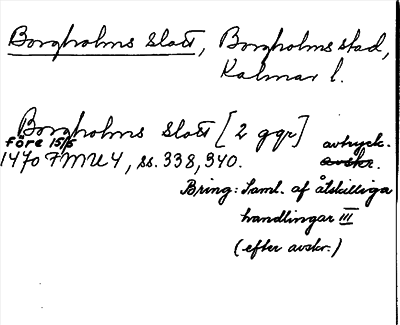 Borgholms slott, Borgholms stad,
Kalmar l.
Borgholms slott [2 ggr]
före 15/5
1470 FMU 4, ss. 338, 340. avtryck.
Bring: Saml. af åtskilliga
handlingar III
(efter avskr.)